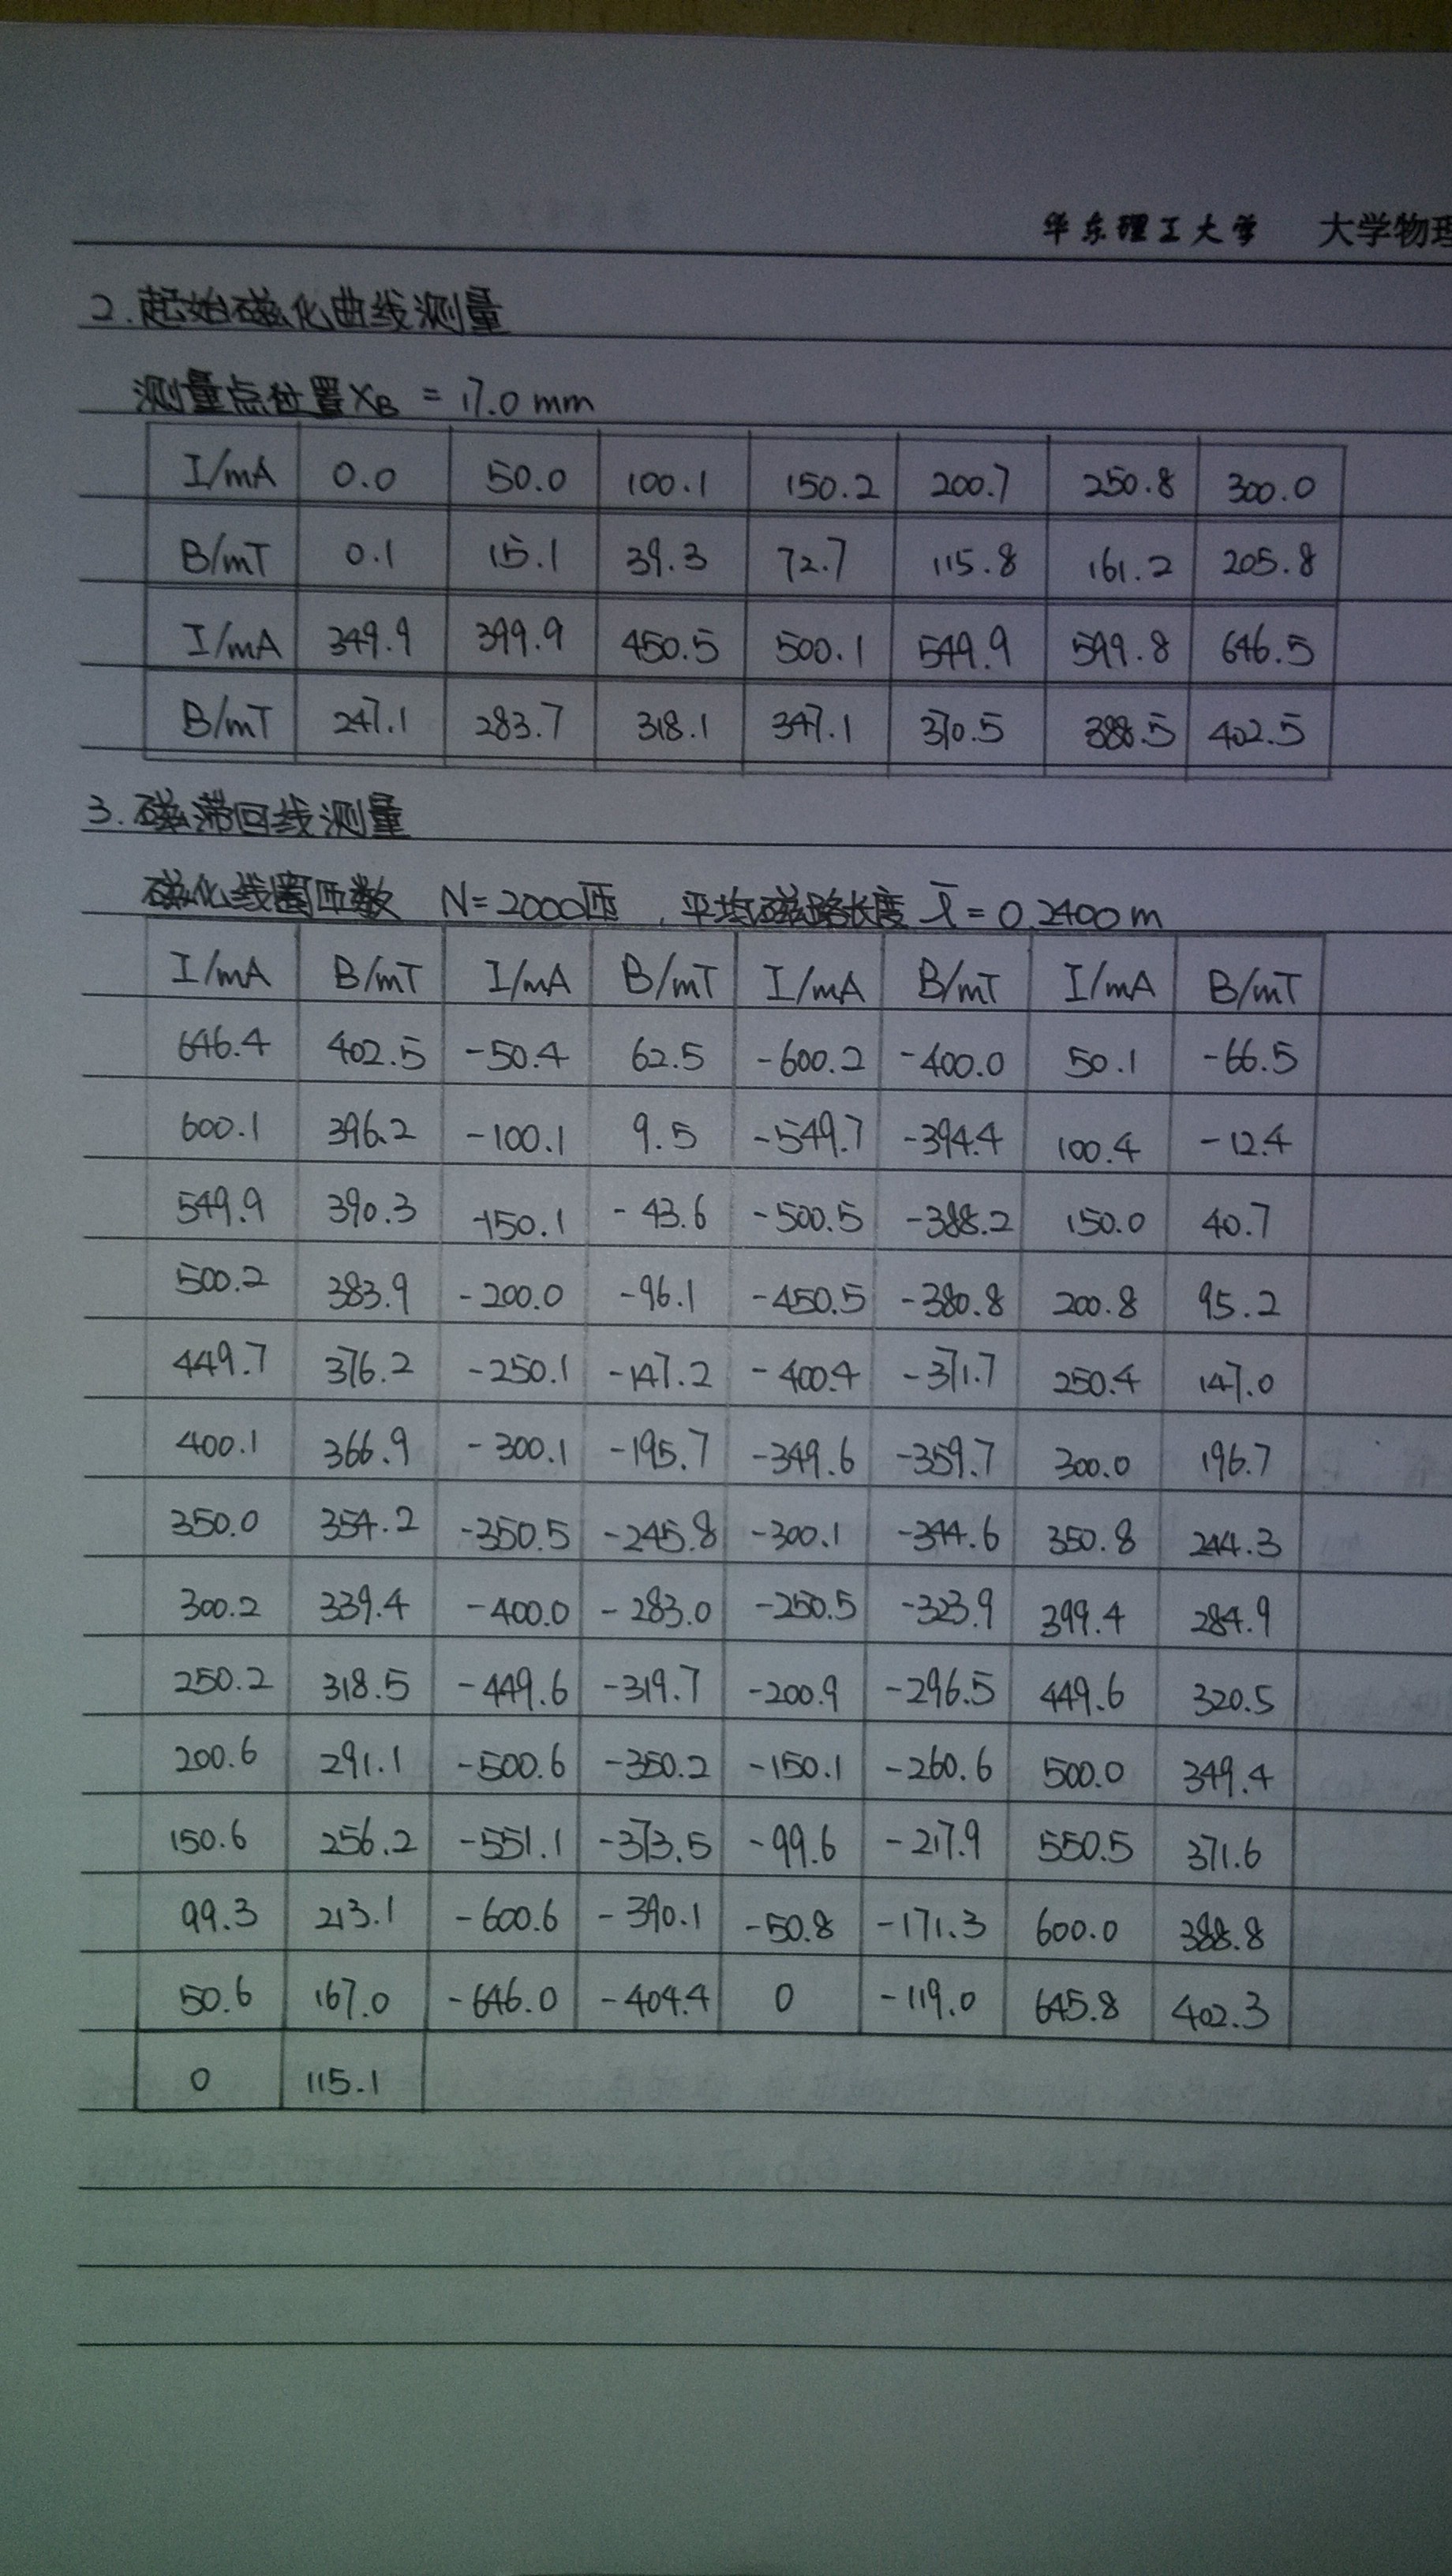 华东理工大学 大学物理
2.起始磁化曲线测量
测量点位置XB = 17.0 mm
I/mA 0.0 50.0 100.1 150.2 200.7 250.8 300.0
B/mT 0.1 15.1 39.3 72.7 115.8 161.2 205.8
I/mA 349.9 399.9 450.5 500.1 549.9 599.8 646.5
B/mT 247.1 283.7 318.1 347.1 370.5 388.5 402.5
3.磁滞回线测量
磁化线圈匝数 N=2000匝，平均磁路长度 l̄=0.2400m
I/mA B/mT I/mA B/mT I/mA B/mT I/mA B/mT
646.4 402.5 -50.4 62.5 -600.2 -400.0 50.1 -66.5
600.1 396.2 -100.1 9.5 -549.7 -394.4 100.4 -12.4
549.9 390.3 -150.1 -43.6 -500.5 -388.2 150.0 40.7
500.2 383.9 -200.0 -96.1 -450.5 -380.8 200.8 95.2
449.7 376.2 -250.1 -147.2 -400.4 -371.7 250.4 147.0
400.1 366.9 -300.1 -195.7 -349.6 -359.7 300.0 196.7
350.0 354.2 -350.5 -245.8 -300.1 -344.6 350.8 244.3
300.2 339.4 -400.0 -283.0 -250.5 -323.9 399.4 284.9
250.2 318.5 -449.6 -319.7 -200.9 -296.5 449.6 320.5
200.6 291.1 -500.6 -350.2 -150.1 -260.6 500.0 349.4
150.6 256.2 -551.1 -373.5 -99.6 -217.9 550.5 371.6
99.3 213.1 -600.6 -390.1 -50.8 -171.3 600.0 388.8
50.6 167.0 -646.0 -404.4 0 -119.0 645.8 402.3
0 115.1